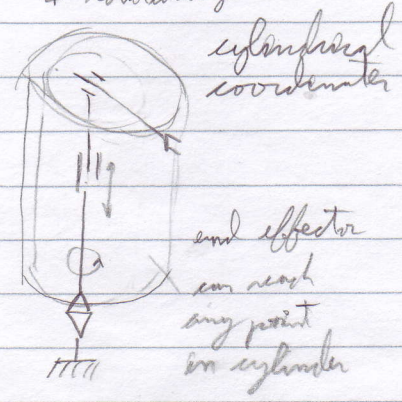 cylindrical
coordinates
end effector
can reach
any point
on cylinder